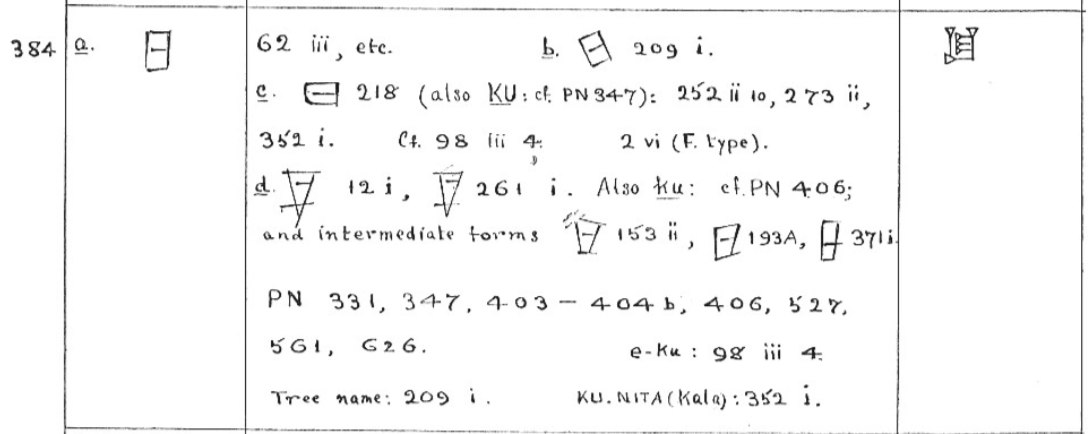 384 a. 62 iii, etc. b. 209 i.
c. 218 (also KU: cf. PN 347): 252 ii 10, 273 ii,
352 i. Cf. 98 iii 4; 2 vi (F. type).
d. 12 i, 261 i. Also ku: cf. PN 406;
and intermediate forms 153 ii, 193A, 371 i.
PN 331, 347, 403 – 404 b, 406, 527,
561, 626. e-ku : 98 iii 4.
Tree name: 209 i. KU.NITA (Kala) : 352 i.